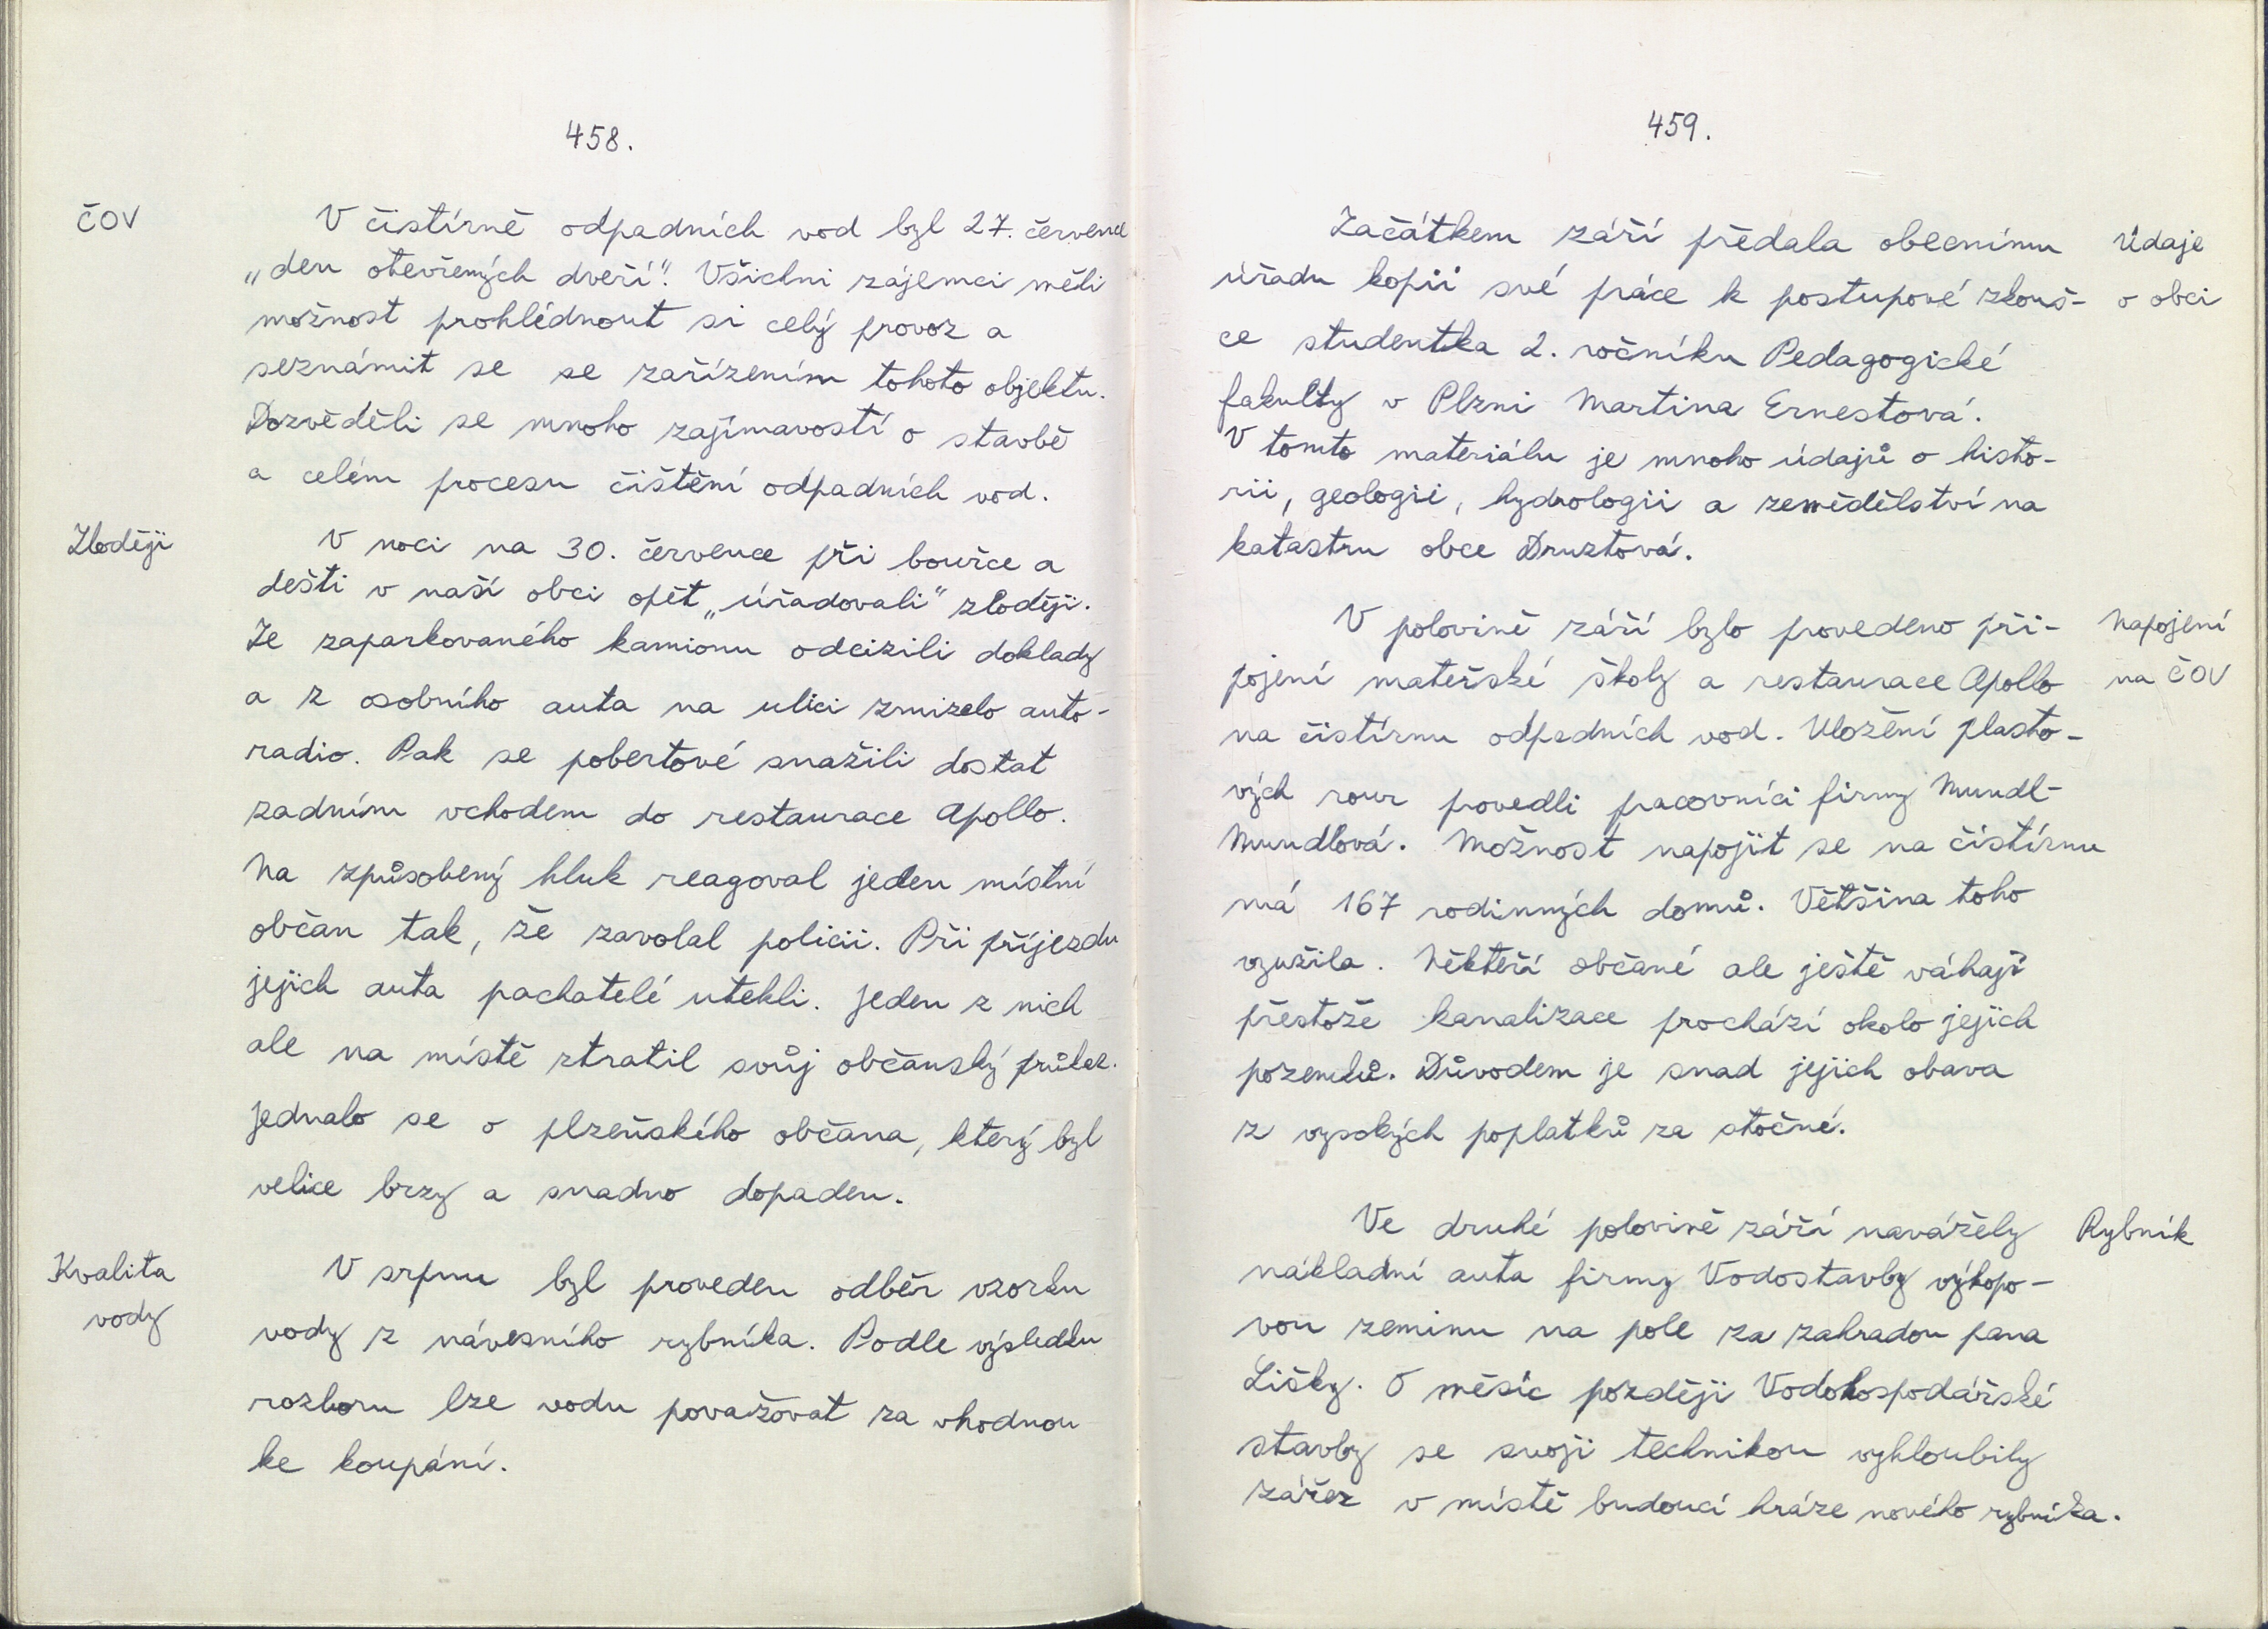 458.
ČOV
V čistírně odpadních vod byl 27. července
„den otevřených dveří". Všichni zájemci měli
možnost prohlédnout si celý provoz a
seznámit se se zařízením tohoto objektu.
Dozvěděli se mnoho zajímavostí o stavbě
a celém procesu čištění odpadních vod.
Zloději
V noci na 30. července při bouřce a
dešti v naší obci opět „úřadovali" zloději.
Ze zaparkovaného kamionu odcizili doklady
a z osobního auta na ulici zmizelo auto-
radio. Pak se pobertové snažili dostat
zadním vchodem do restaurace Apollo.
Na způsobený hluk reagoval jeden místní
občan tak, že zavolal policii. Při příjezdu
jejich auta pachatelé utekli. Jeden z nich
ale na místě ztratil svůj občanský průkaz.
Jednalo se o plzeňského občana, který byl
velice brzy a snadno dopaden.
Kvalita
vody
V srpnu byl proveden odběr vzorku
vody z návesního rybníka. Podle výsledku
rozboru lze vodu považovat za vhodnou
ke koupání.
459.
Začátkem září předala obecnímu
úřadu kopii své práce k postupové zkouš-
ce studentka 2. ročníku Pedagogické
fakulty v Plzni Martina Ernestová.
V tomto materiálu je mnoho údajů o histo-
rii, geologii, hydrologii a zemědělství na
katastru obce Druztová.
Údaje
o obci
V polovině září bylo provedeno při-
pojení mateřské školy a restaurace Apollo
na čistírnu odpadních vod. Uložení plasto-
vých rour provedli pracovníci firmy Mundl-
Mundlová. Možnost napojit se na čistírnu
má 167 rodinných domů. Většina toho
využila. Někteří občané ale ještě váhají
přestože kanalizace prochází okolo jejich
pozemků. Důvodem je snad jejich obava
z vysokých poplatků za stočné.
Napojení
na ČOV
Ve druhé polovině září navážely
nákladní auta firmy Vodostavby výkopo-
vou zeminu na pole za zahradou pana
Lišky. O měsíc později Vodohospodářské
stavby se svoji technikou vyhloubily
zářez v místě budoucí hráze nového rybníka.
Rybník